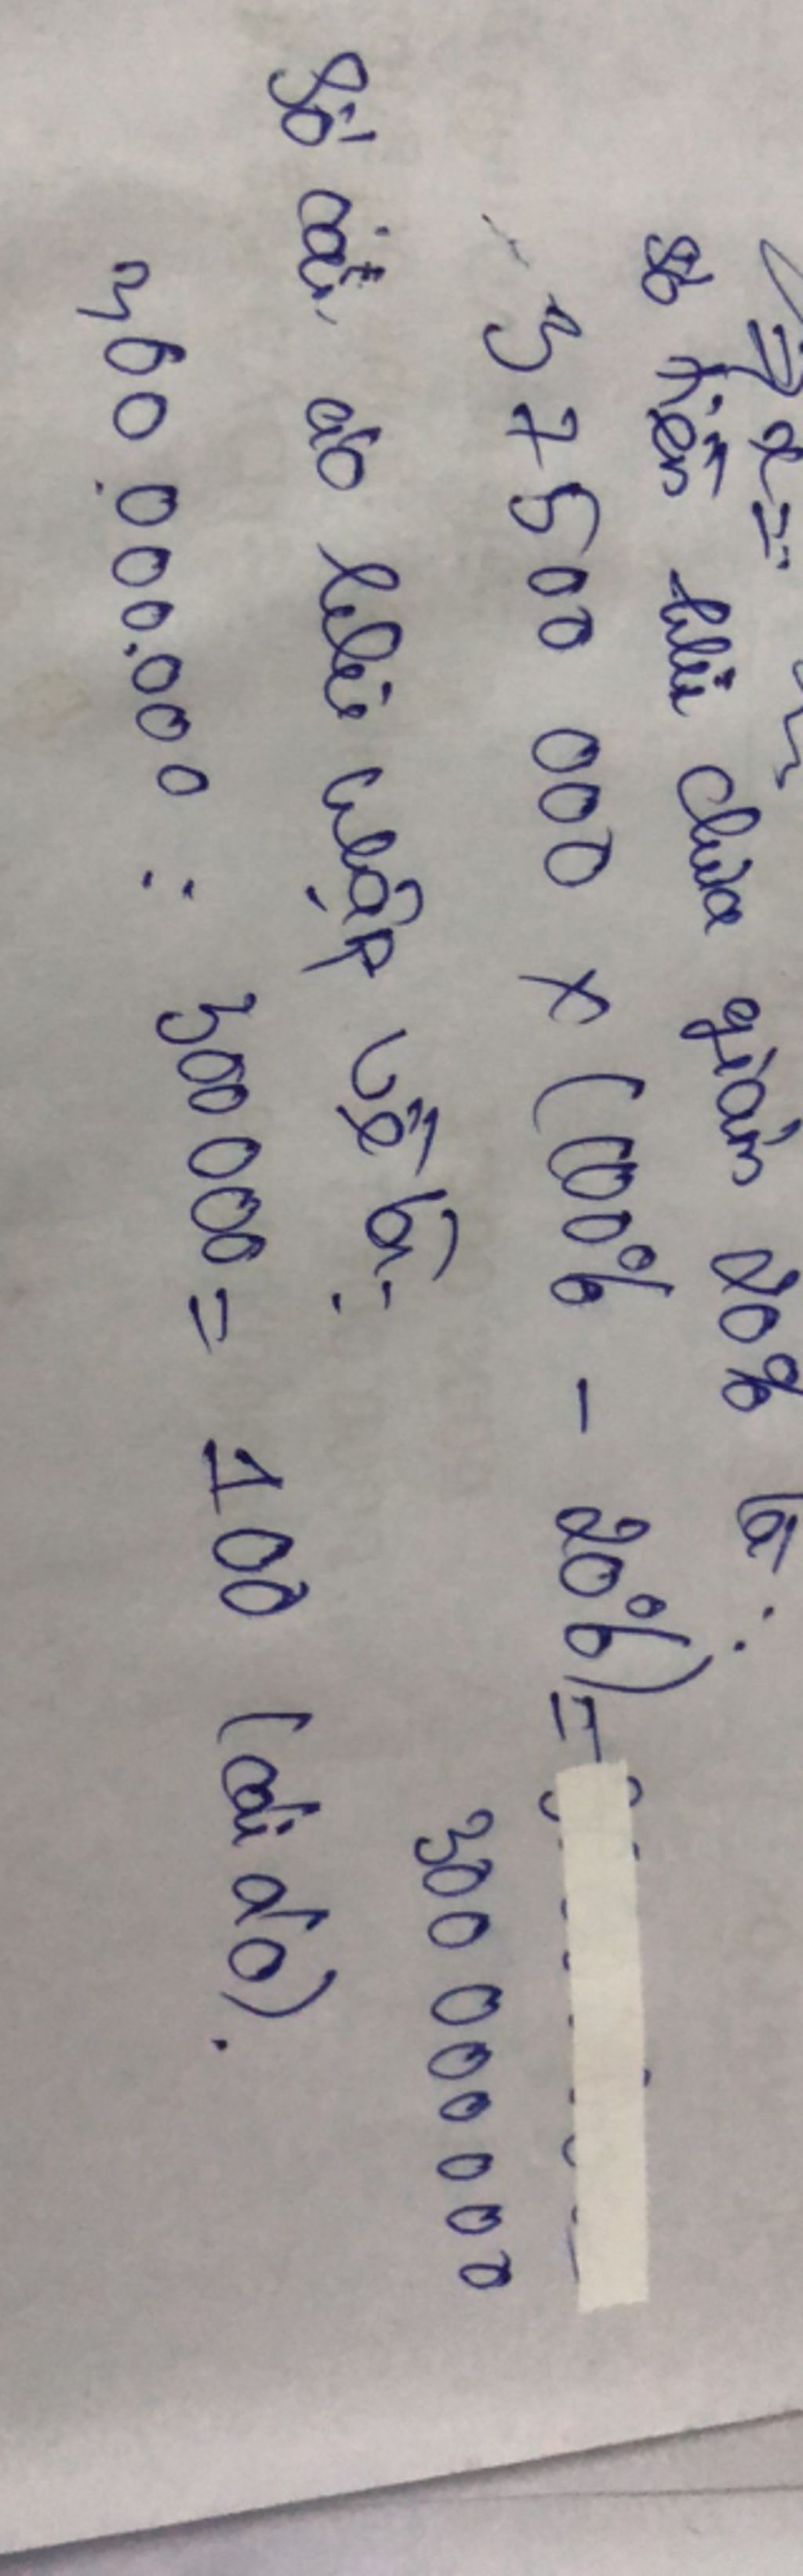 => x =
Số tiền khi chưa giảm 20% là:
37500 000 x (100% - 20%) =
300 000 000
Số cái áo khi nhập về là:
300.000.000 : 300 000 = 100 (cái áo).